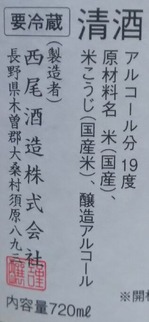 要冷蔵
清酒
アルコール分 19度
原材料名 米(国産)、
米こうじ(国産米)、醸造アルコール
(製造者)
西尾酒造株式会社
長野県木曽郡大桑村須原八九三
内容量720mℓ
※開